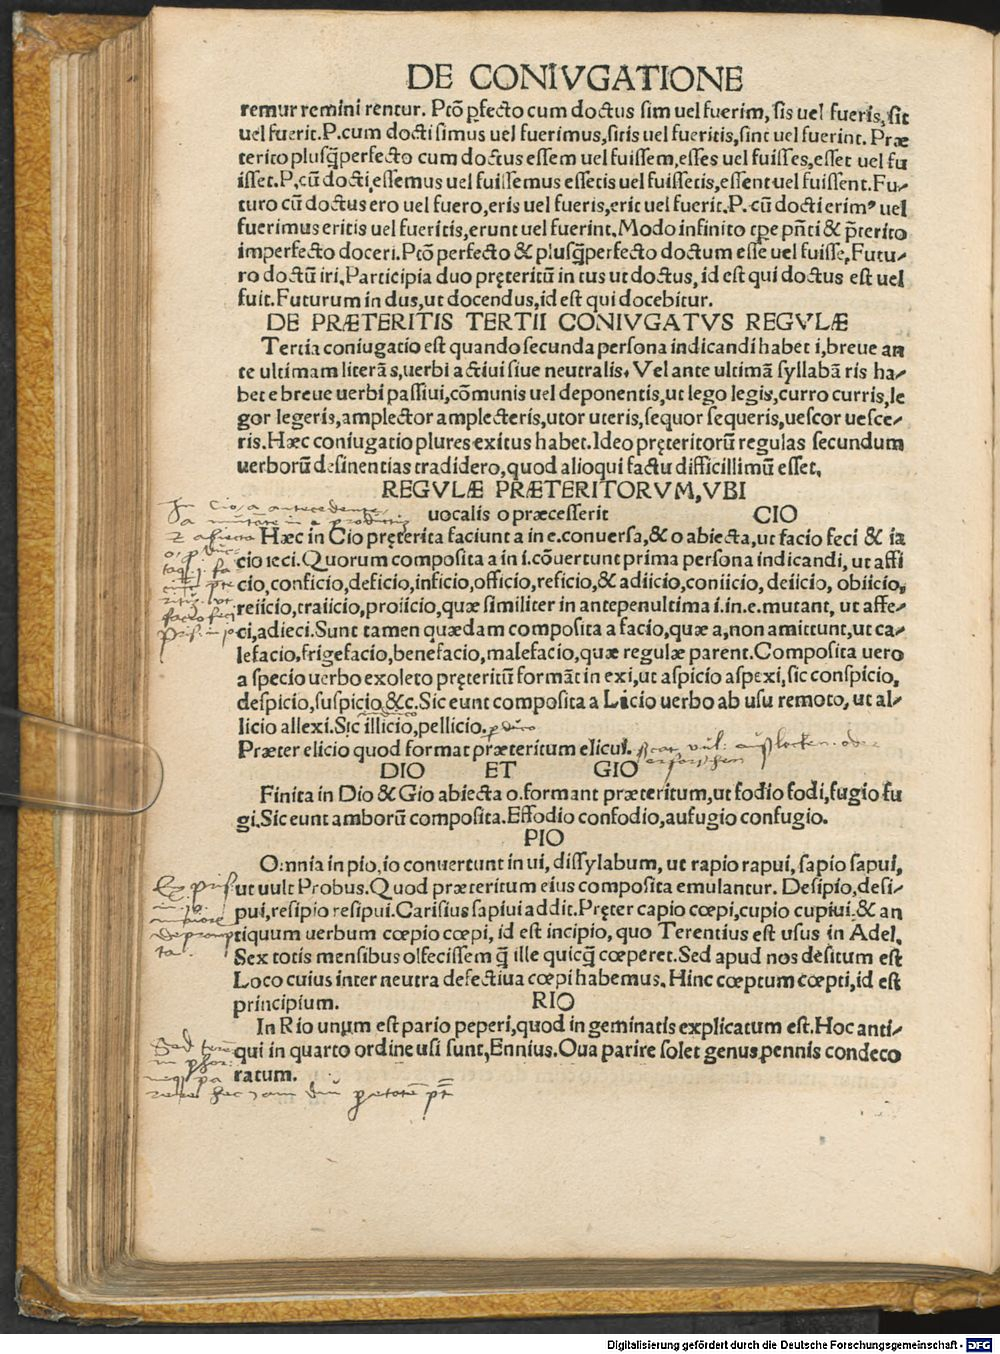 DE CONIVGATIONE
remur remini rentur. Ptõ ꝑfecto cum doctus sim uel fuerim, sis uel fueris, sit
uel fuerit. P. cum docti simus uel fuerimus, sitis uel fueritis, sint uel fuerint. Præ
terito plusq̃perfecto cum doctus essem uel fuissem, esses uel fuisses, esset uel fu
isset. P. cũ docti essemus uel fuissemus essetis uel fuissetis, essent uel fuissent. Fu-
turo cũ doctus ero uel fuero, eris uel fueris, erit uel fuerit. P. cũ docti erimꝰ uel
fuerimus eritis uel fueritis, erunt uel fuerint. Modo infinito tꝑe pñti & p̃terito
imperfecto doceri. Ptõ perfecto & plusq̃perfecto doctum esse uel fuisse, Futu-
ro doctũ iri. Participia duo pręteritũ in tus ut doctus, id est qui doctus est uel
fuit. Futurum in dus, ut docendus, id est qui docebitur.
DE PRÆTERITIS TERTII CONIVGATVS REGVLÆ
Tertia coniugatio est quando secunda persona indicandi habet i, breue an
te ultimam literã s, uerbi actiui siue neutralis. Vel ante ultimã syllabã ris ha-
bet e breue uerbi passiui, cõmunis uel deponentis, ut lego legis, curro curris, le
gor legeris, amplector amplecteris, utor uteris, sequor sequeris, uescor uesce-
ris. Hæc coniugatio plures exitus habet. Ideo pręteritorũ regulas secundum
uerborũ desinentias tradidero, quod alioqui factu difficillimũ esset.
REGVLÆ PRÆTERITORVM, VBI
uocalis o præcesserit CIO
Hæc in Cio pręterita faciunt a in e. conuersa, & o abiecta, ut facio feci & ia
cio ieci. Quorum composita a in i. cõuertunt prima persona indicandi, ut affi
cio, conficio, deficio, inficio, officio, reficio, & adiicio, coniicio, deiicio, obiicio,
reiicio, traiicio, proiicio, quæ similiter in antepenultima i. in. e. mutant, ut affe-
ci, adieci. Sunt tamen quædam composita a facio, quæ a, non amittunt, ut ca-
lefacio, frigefacio, benefacio, malefacio, quæ regulæ parent. Composita uero
a specio uerbo exoleto pręteritũ formãt in exi, ut aspicio aspexi, sic conspicio,
despicio, suspicio &c. Sic eunt composita a Licio uerbo ab usu remoto, ut al-
licio allexi. Sic illicio, pellicio.
Præter elicio quod format præteritum elicui.
DIO ET GIO
Finita in Dio & Gio abiecta o. formant præteritum, ut fodio fodi, fugio fu
gi. Sic eunt amborũ composita. Effodio confodio, aufugio confugio.
PIO
Omnia in pio, io conuertunt in ui, dissylabum, ut rapio rapui, sapio sapui,
ut uult Probus. Quod præteritum eius composita emulantur. Desipio, desi-
pui, resipio resipui. Carisius sapiui addit. Pręter capio cœpi, cupio cupiui. & an
tiquum uerbum cœpio cœpi, id est incipio, quo Terentius est usus in Adel.
Sex totis mensibus olfecissem q̃ ille quicq̃ cœperet. Sed apud nos desitum est
Loco cuius inter neutra defectiua cœpi habemus. Hinc cœptum cœpti, id est
principium. RIO
In Rio unum est pario peperi, quod in geminatis explicatum est. Hoc anti-
qui in quarto ordine usi sunt, Ennius. Oua parire solet genus pennis condeco
ratum.
Digitalisierung gefördert durch die Deutsche Forschungsgemeinschaft - DFG